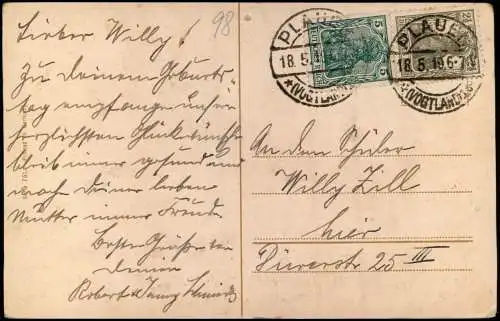 Lieber Willy!
98
Zu Deinem Geburts-
tag empfange unsre
herzlichsten Glückwünsche
bleib immer gesund und
mach Deiner lieben
Mutter immer Freude.
Beste Grüße von
Deinen
Robert u. Jenny
PLAUEN
18.5.
(VOGTLAND)
5
PLAUEN
18.5.18.6-7
(VOGTLAND)
An den Schüler
Willy Zill
hier
25 III